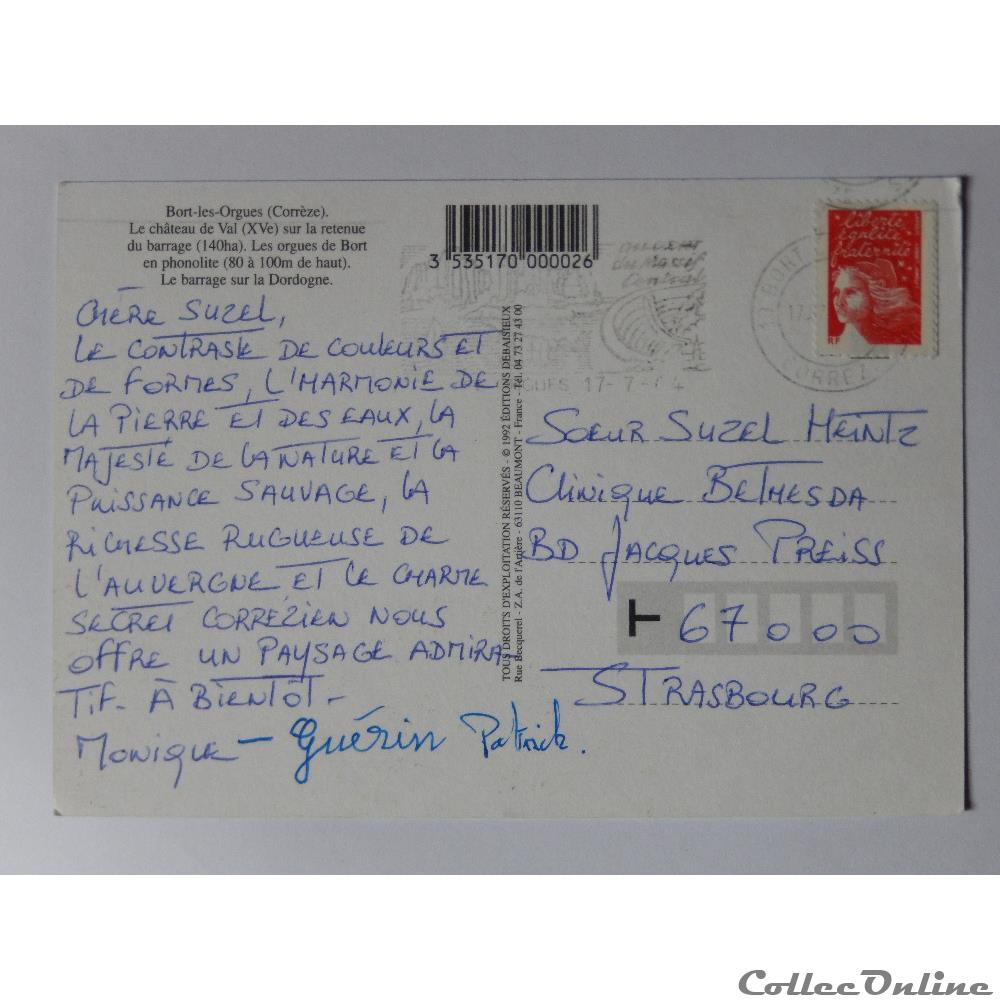 Bort-les-Orgues (Corrèze).
Le château de Val (XVe) sur la retenue
du barrage (140ha). Les orgues de Bort
en phonolite (80 à 100m de haut).
Le barrage sur la Dordogne.
3 535170 000026
CHÈRE SUZEL,
LE CONTRASTE DE COULEURS ET
DE FORMES, L'HARMONIE DE
LA PIERRE ET DES EAUX, LA
MAJESTÉ DE LA NATURE ET LA
PUISSANCE SAUVAGE, LA
RICHESSE RUGUEUSE DE
L'AUVERGNE ET LE CHARME
SECRET CORREZIEN NOUS
OFFRE UN PAYSAGE ADMIRA-
TIF- À BIENTÔT-
MONIQUE - Guérin Patrick.
TOUS DROITS D'EXPLOITATION RÉSERVÉS - © 1992 ÉDITIONS DEBAISIEUX
Rue Becquerel - Z.A. de l'Artière - 63110 BEAUMONT - France - Tél. 04 73 27 43 00
du Massif
Central
17-7-
BORT
CORREZ
liberté
égalité
fraternité
RF
SOEUR SUZEL HEINTZ
CLINIQUE BETHESDA
BD JACQUES PREISS
T 67000
STRASBOURG
CollecOnline